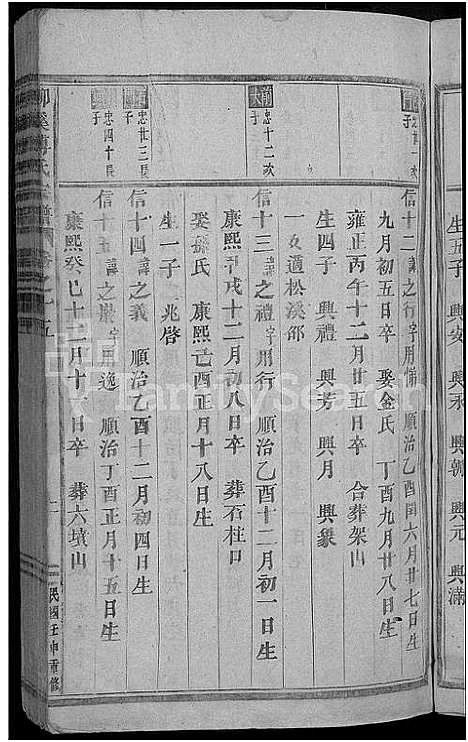 生五子 興安 興永 興朝 興元 興滿
忠廿一次子
信十二 諱之行 字用備 順治乙酉閏六月廿七日生
九月初五日卒 娶金氏 丁酉九月廿八日生
雍正丙午十二月廿五日卒 合葬架山
生四子 興禮 興芳 興月 興象
一女適松溪邵
忠十二次子
信十三 諱之禮 字用行 順治乙酉十二月初一日生
康熙 戌十二月初八日卒 葬石柱口
娶孫氏 康熙 酉正月十八日生
生一子 兆啓
忠廿三長子
信十四 諱之義 順治乙酉十二月初四日生
忠四十長子
信十五 諱之嚴 字用逸 順治丁酉正月十五日生
康熙癸巳十二月十 日卒 葬六墳山
柳溪傅氏 譜 卷之十五
民國壬申重修
FamilySearch